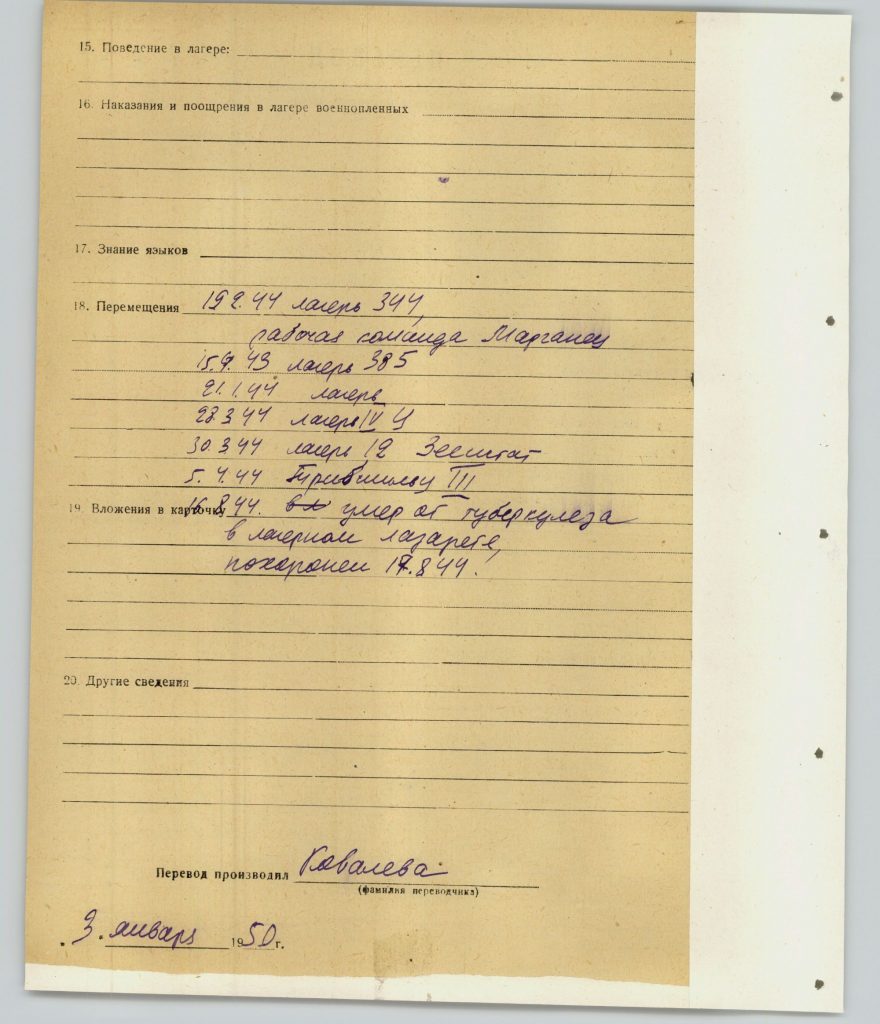 15. Поведение в лагере:
16. Наказания и поощрения в лагере военнопленных
17. Знание языков
18. Перемещения 19 2.44 лагерь 344,
рабочая команда Марганец
15.9. 43 лагерь 385
21.1.44 лагерь
23.3 44 лагерь IV Ц
30.3 44 лагерь 12
5. 4.44 III
19. Вложения в карточку 16.8 44. умер от туберкулеза
в лагерном лазарете,
похоронен 17.8 44.
20. Другие сведения
Перевод производил Ковалева
(фамилия переводчика)
3. январь 1950 г.